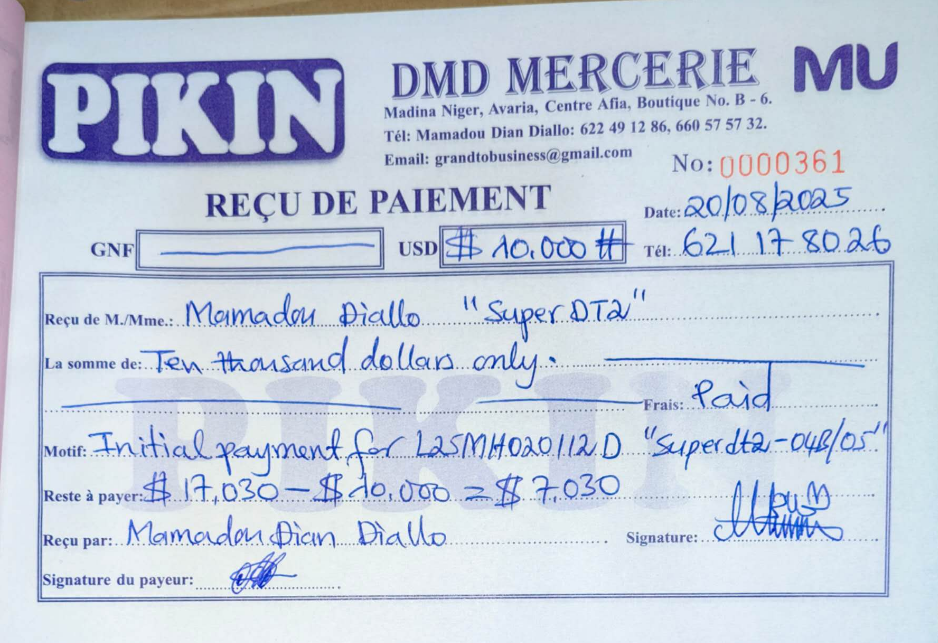 PIKIN
DMD MERCERIE
MU
Madina Niger, Avaria, Centre Afia, Boutique No. B - 6.
Tél: Mamadou Dian Diallo: 622 49 12 86, 660 57 57 32.
Email: grandtobusiness@gmail.com
No: 0000361
REÇU DE PAIEMENT
Date: 20/08/2025
GNF USD $ 10.000 # Tél: 621 17 80 26
Reçu de M./Mme.: Mamadou Diallo "SuperDT2"
La somme de: Ten thousand dollars only.
Frais: Paid
Motif: Initial payment for L25MH020112D "Superdt2-04B/05"
Reste à payer: $ 17,030 - $ 10,000 = $ 7,030
Reçu par: Mamadou Dian Diallo Signature:
Signature du payeur:
PIKIN